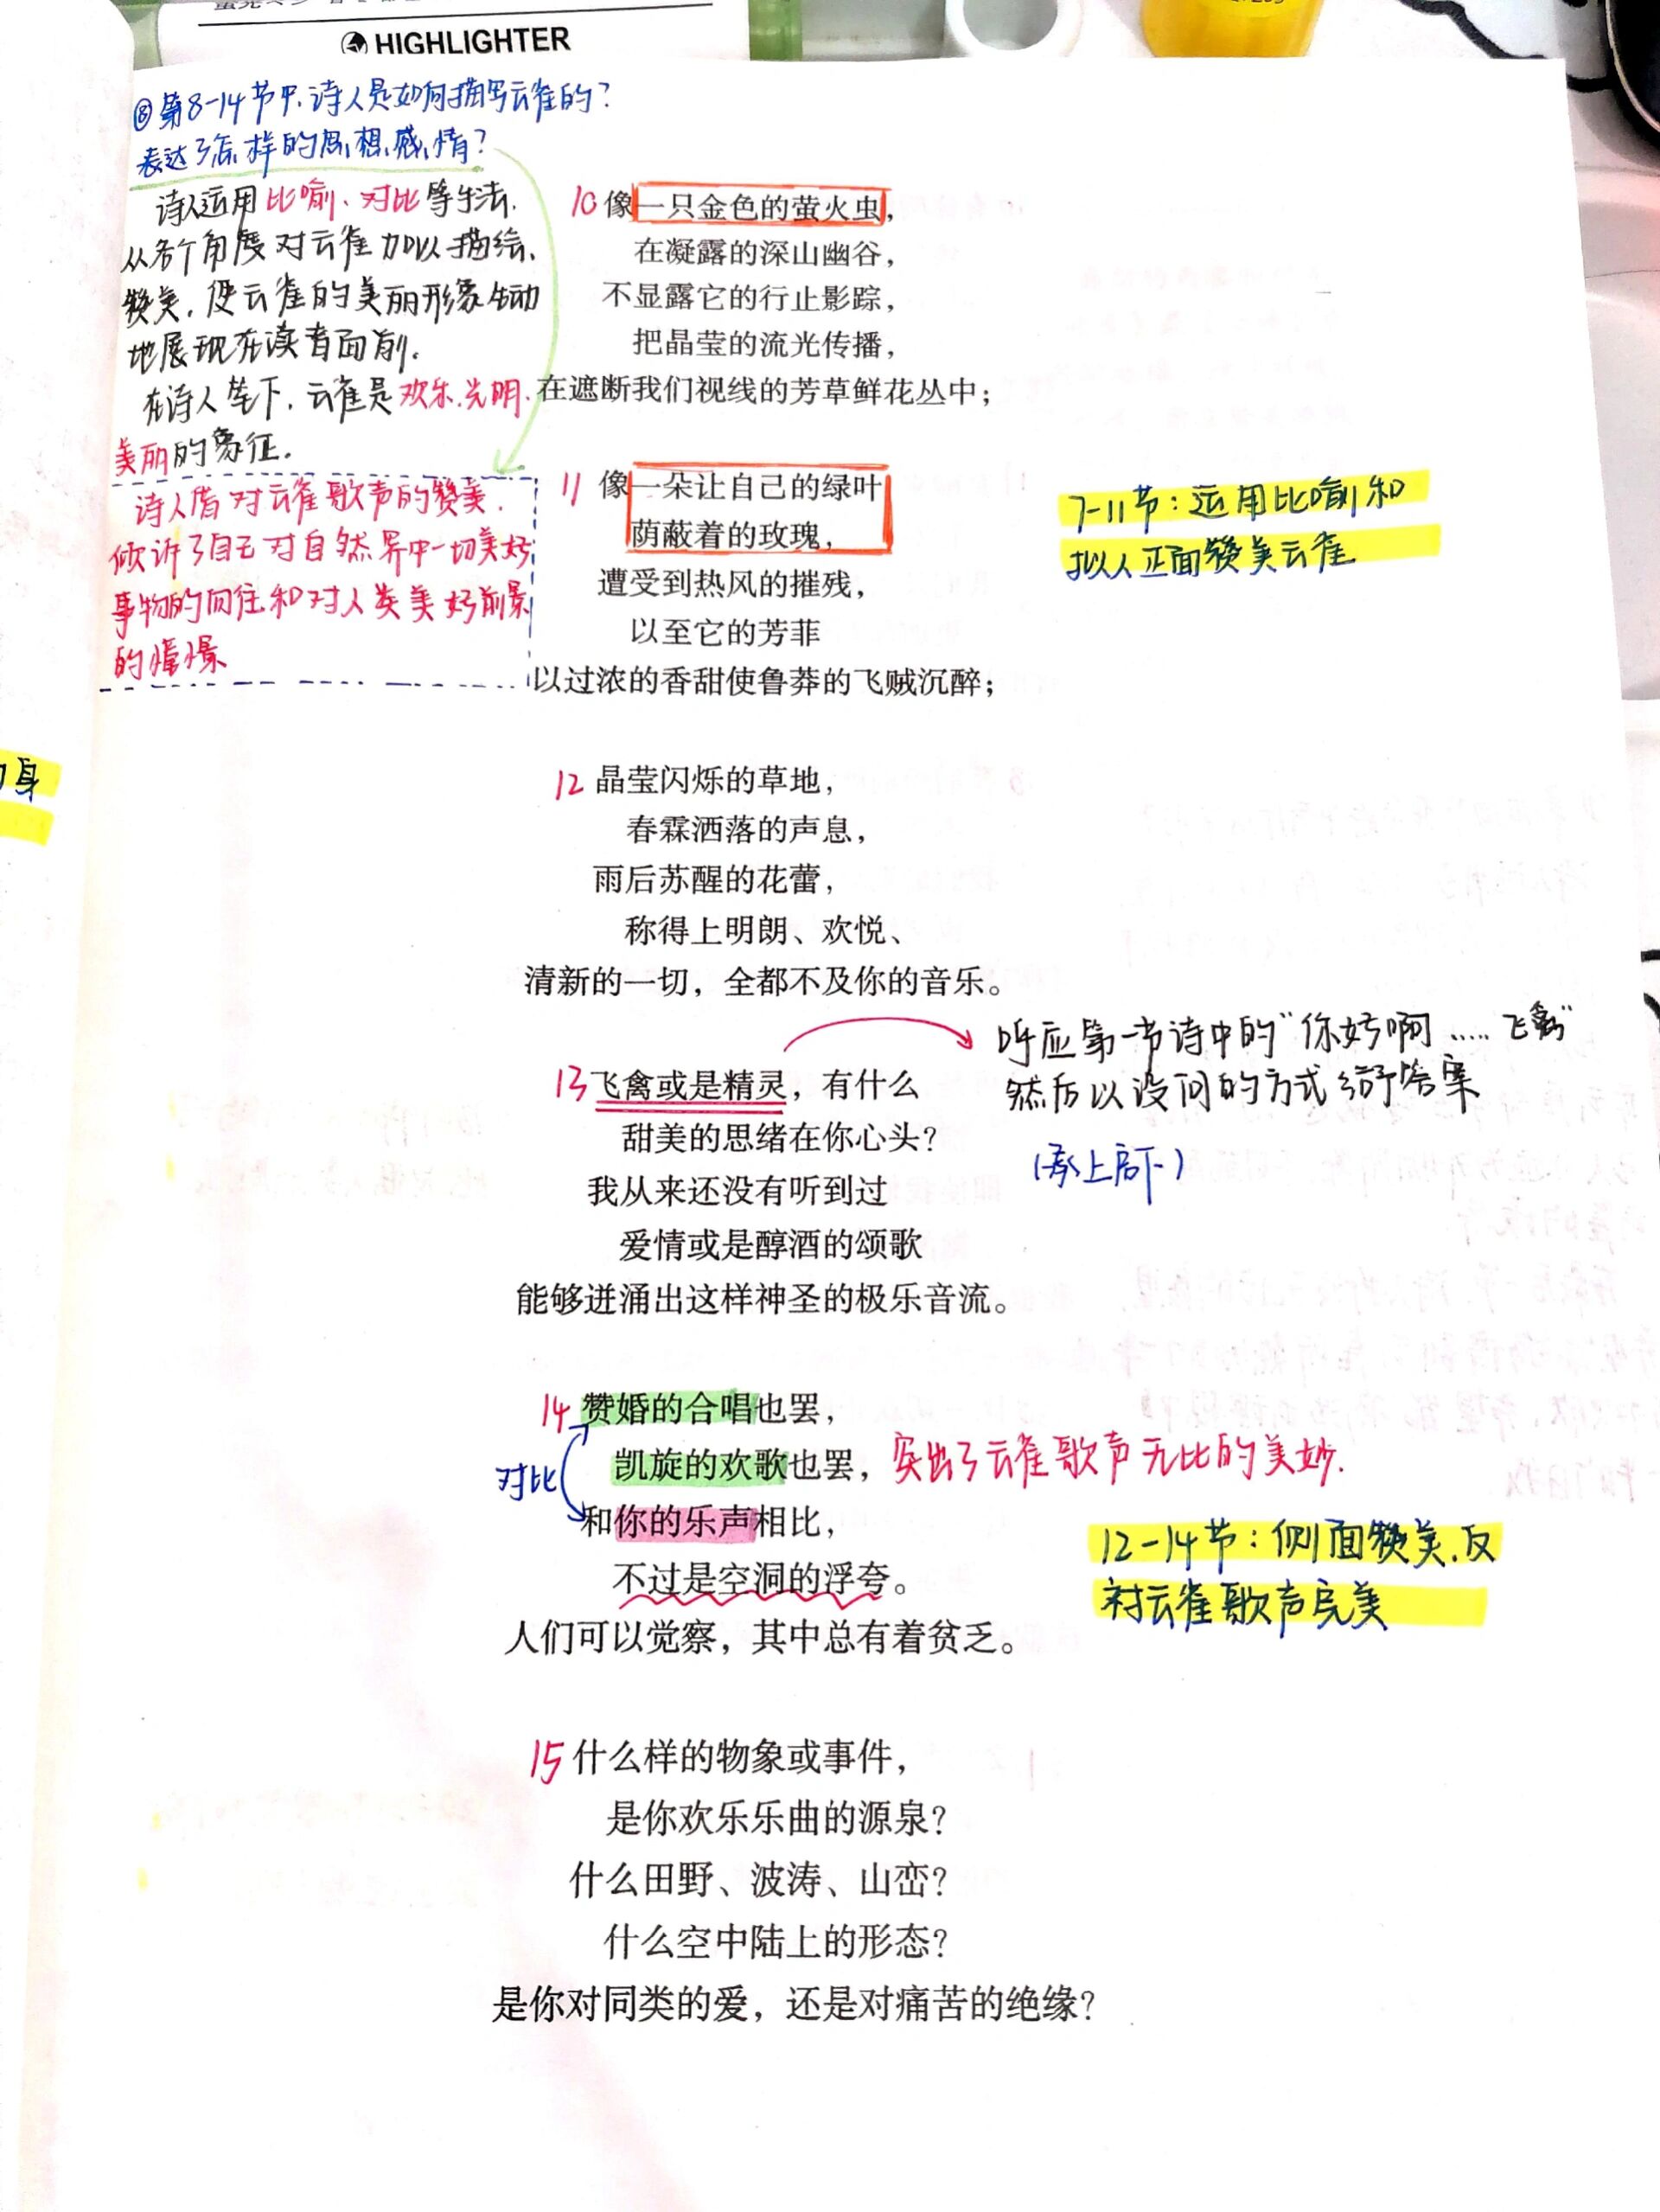 HIGHLIGHTER
⑧第8-14节中,诗人是如何描写云雀的?
表达了怎样的思想感情?
诗人运用比喻、对比等手法,
从各个角度对云雀加以描绘、
赞美,使云雀的美丽形象生动
地展现在读者面前.
在诗人笔下,云雀是欢乐、光明、
美丽的象征.
诗人借对云雀歌声的赞美,
倾诉了自己对自然界中一切美好
事物的向往和对人类美好前景
的憧憬
10 像一只金色的萤火虫,
在凝露的深山幽谷,
不显露它的行止影踪,
把晶莹的流光传播,
在遮断我们视线的芳草鲜花丛中;
11 像一朵让自己的绿叶
荫蔽着的玫瑰,
遭受到热风的摧残,
以至它的芳菲
以过浓的香甜使鲁莽的飞贼沉醉;
7-11节:运用比喻和
拟人正面赞美云雀
身
12 晶莹闪烁的草地,
春霖洒落的声息,
雨后苏醒的花蕾,
称得上明朗、欢悦、
清新的一切,全都不及你的音乐。
13 飞禽或是精灵,有什么
甜美的思绪在你心头?
我从来还没有听到过
爱情或是醇酒的颂歌
能够迸涌出这样神圣的极乐音流。
呼应第一节诗中的"你好啊……飞禽"
然后以设问的方式给予答案
(承上启下)
14 赞婚的合唱也罢,
凯旋的欢歌也罢,
和你的乐声相比,
不过是空洞的浮夸。
人们可以觉察,其中总有着贫乏。
对比
突出了云雀歌声无比的美妙.
12-14节:侧面赞美,反
衬云雀歌声完美
15 什么样的物象或事件,
是你欢乐乐曲的源泉?
什么田野、波涛、山峦?
什么空中陆上的形态?
是你对同类的爱,还是对痛苦的绝缘?